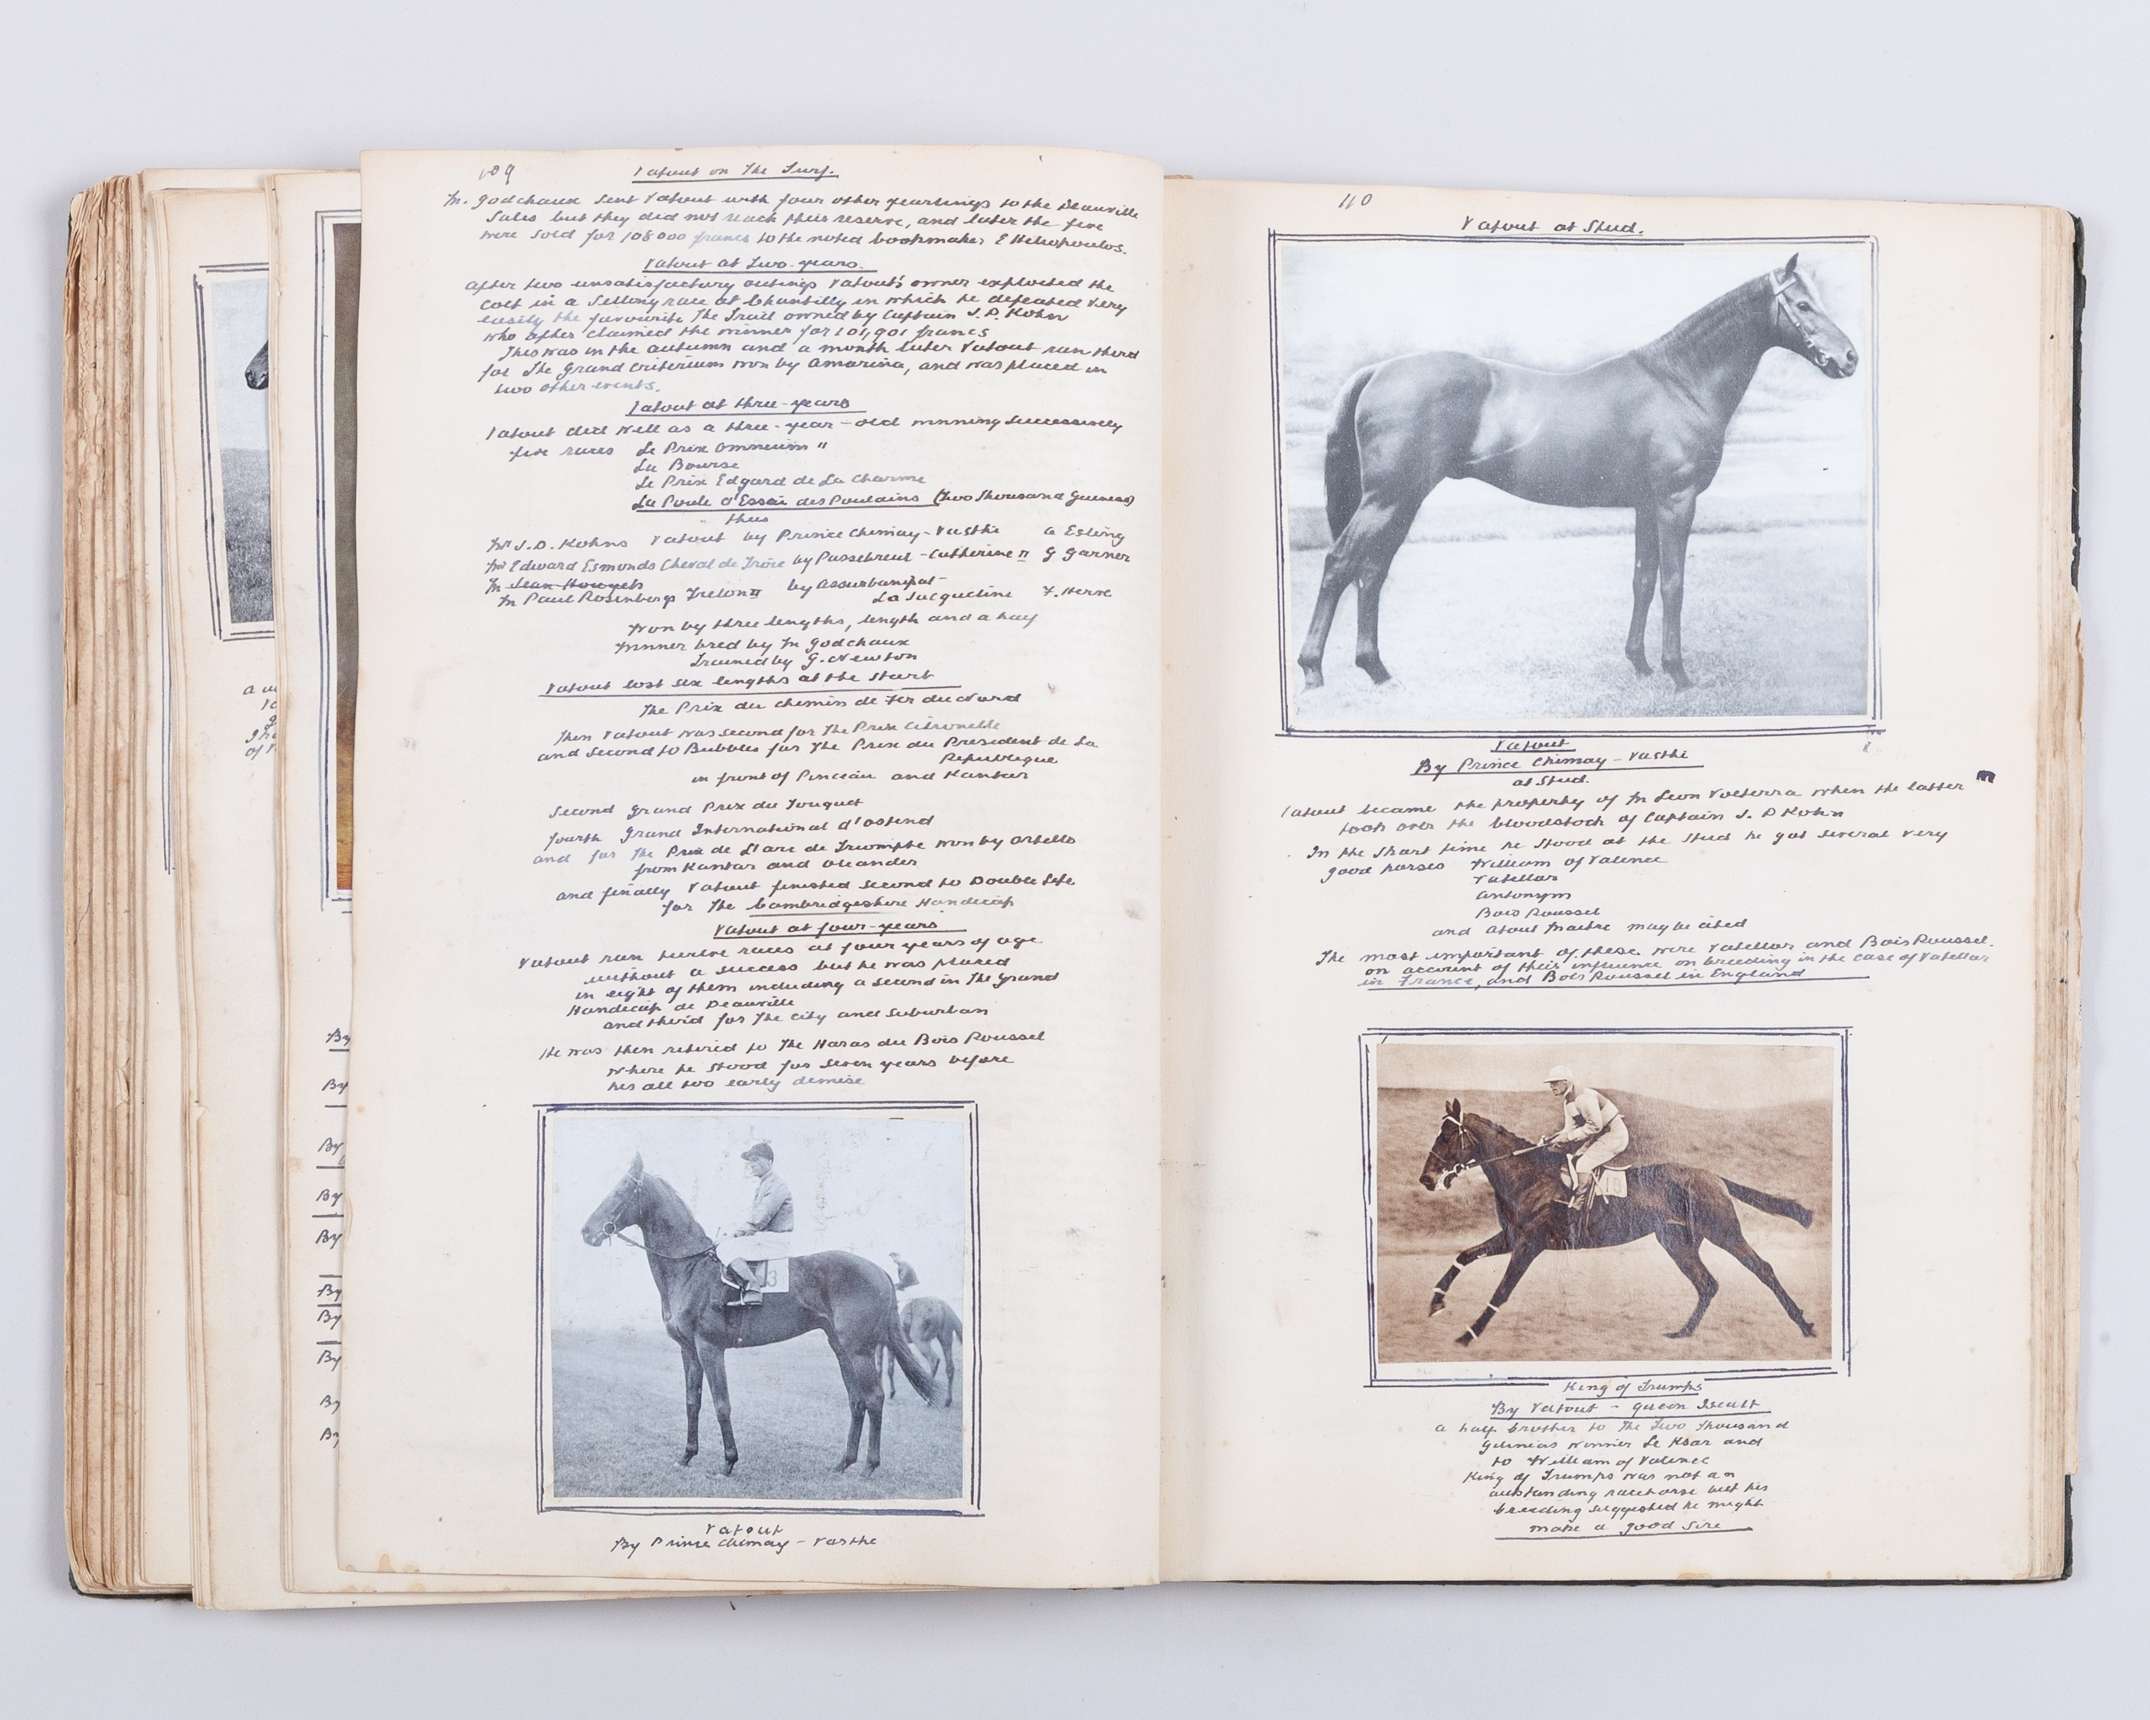 109
Vatout on The Turf.
M. Godchaux sent Vatout with four other yearlings to the Deauville
Sales but they did not reach their reserve, and later the five
were sold for 108000 francs to the noted bookmaker E Heliopoulos.
Vatout at Two-years.
After two unsatisfactory outings Vatout's owner exploited the
colt in a selling race at Chantilly in which he defeated very
easily the favourite The Trail owned by Captain J.D. Kohn
who after claimed the winner for 101,901 francs
This was in the autumn and a month later Vatout ran third
for The Grand Criterium won by Amorina, and was placed in
two other events.
Vatout at three-years
Vatout did well as a three-year-old winning successively
five races Le Prix Omnium "
La Bourse
Le Prix Edgard de La Charme
La Poule d'Essai des Poulains (Two Thousand Guineas)
thus
Mr J.D. Kohns Vatout by Prince Chimay-Vasthi A Esling
Mr Edward Esmonds Cheval de Troie by Passebreul-Catherine II G Garner
M Jean
M Paul Rosenbergs Trelon II by Assurbanipal-
La Jacqueline F. Herve
Won by three lengths, length and a half
Winner bred by M Godchaux
Trained by G. Newton
Vatout lost six lengths at the start
The Prix du Chemin de Fer du Nord
Then Vatout was second for The Prix Citronelle
and second to Bubbles for The Prix du President de La
Republique
in front of Pinceau and Kantar
Second Grand Prix du Touquet
fourth Grand International d'Ostend
and for The Prix de L'arc de Triomphe won by Ortello
from Kantar and Oleander
and finally Vatout finished second to Double Life
for The Cambridgeshire Handicap
Vatout at four-years
Vatout ran twelve races at four years of age
without a success but he was placed
in eight of them including a second in The Grand
Handicap de Deauville
and third for The City and Suburban
He was then retired to The Haras du Bois Roussel
where he stood for seven years before
his all too early demise
3
Vatout
By Prince Chimay - Vasthi
110
Vatout at Stud.
Vatout
By Prince Chimay - Vasthi
at Stud.
Vatout became the property of M Leon Volterra when the latter
took over the bloodstock of Captain J. D Kohn
In the short time he stood at the Stud he got several very
good horses William of Valence
Vatellor
Antonym
Bois Roussel
and Atout Maitre may be cited
The most important of these were Vatellor and Bois Roussel.
on account of their influence on breeding in the case of Vatellor
in France, and Bois Roussel in England
King of Trumps
By Vatout - Queen Iseult
a half brother to The Two Thousand
Guineas winner Le Ksar and
to William of Valence
King of Trumps was not an
outstanding racehorse but his
breeding suggested he might
make a good sire
By
By
By
By
By
By
By
By
By
By